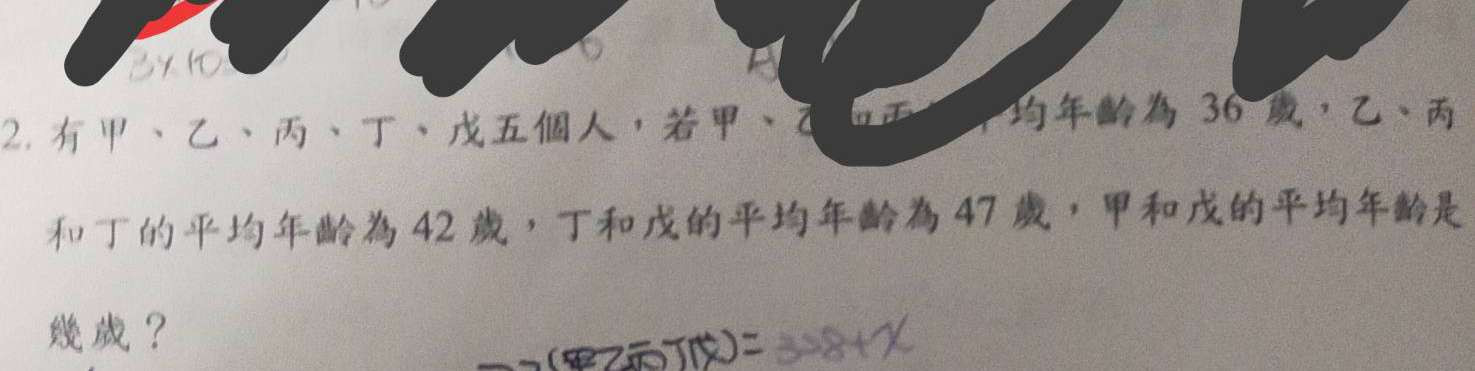 3×10
2. 有甲、乙、丙、丁、戊五個人,若甲、乙和丙 平均年齡為 36 歲,乙、丙
和丁的平均年齡為 42 歲,丁和戊的平均年齡為 47 歲,甲和戊的平均年齡是
幾歲?
(甲乙丙丁戊)=328+x